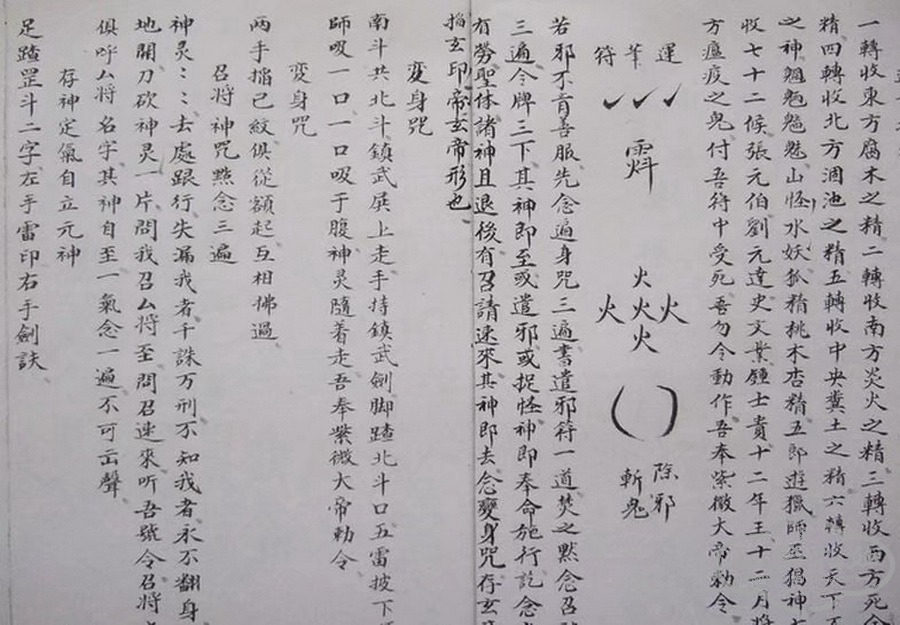 一轉收東方腐木之精二轉收南方炎火之精三轉收西方死金
精四轉收北方涸池之精五轉收中央糞土之精六轉收天下
之神魍魎魑魅山怪水妖狐精桃木杏精五郎遊獵師巫猖神
收七十二候張元伯劉元達史文業鍾士貴十二年王十二月將
方瘟疫之鬼付吾符中受死吾勿令動作吾奉紫微大帝勅令
運筆符
火
火火火
火
除邪
斬鬼
若邪不肯善服先念遍身咒三遍書遣邪符一道焚之黙念召
三遍令牌三下其神即至或遣邪或捉怪神即奉命施行訖念
有勞聖体諸神且退後有召請速來其神即去念變身咒存玄
搯玄印帝玄帝形也
変身咒
南斗共北斗鎮武屏上走手持鎮武劍脚踏北斗口五雷披下
師吸一口一口吸于腹神灵隨着走吾奉紫微大帝勅令
変身咒
两手搯已紋俱從額起互相拂過
召將神咒黙念三遍
神灵〻〻去處跟行失漏我者千誅万刑不知我者永不翻身
地開刀砍神灵一片問我召厶將至問召速來听吾號令召將
俱呼厶將名字其神自至一氣念一遍不可出聲
存神定氣自立元神
足踏罡斗二字左手雷印右手劍訣